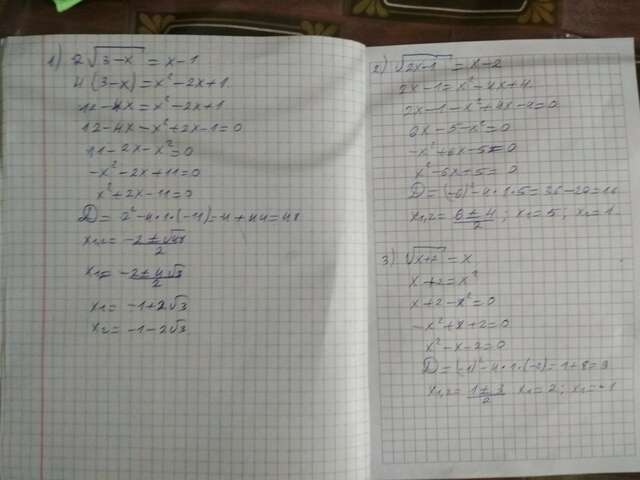 1) 2√(3-x) = x-1
4(3-x) = x²-2x+1
12-4x = x²-2x+1
12-4x-x²+2x-1=0
11-2x-x²=0
-x²-2x+11=0
x²+2x-11=0
D = 2²-4·1·(-11)=4+44=48
x₁,₂= -2±√48 / 2
x₁= -2±4√3 / 2
x₁= -1+2√3
x₂= -1-2√3
2) √(2x-1) = x-2
2x-1=x²-4x+4
2x-1-x²+4x-4=0
6x-5-x²=0
-x²+6x-5=0
x²-6x+5=0
D=(-6)²-4·1·5=36-20=16
x₁,₂= 6±4 / 2 ; x₁=5; x₂=1
3) √(x+2) = x
x+2=x²
x+2-x²=0
-x²+x+2=0
x²-x-2=0
D=(-1)²-4·1·(-2)=1+8=9
x₁,₂= 1±3 / 2 x₁=2; x₂=-1